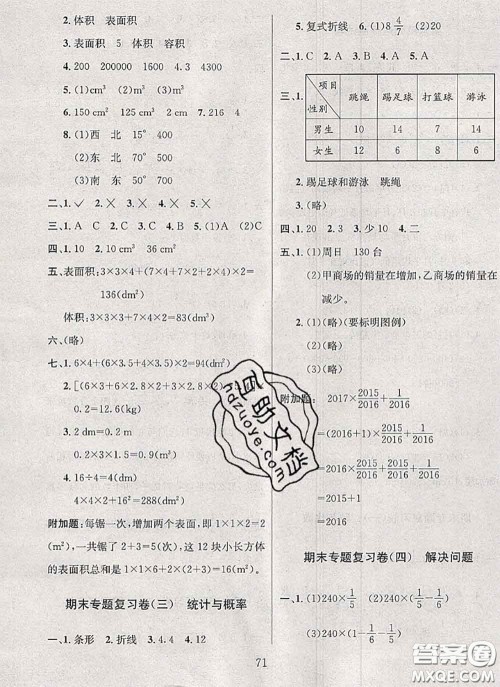 2.体积　表面积
3.表面积　5　体积　容积
4.200　200000　1600　4.3　4300
5.(1)cm³　(2)m³　(3)cm²
6.150 cm²　125 cm³　7.216　4
8.(1)西　北　15°　400
(2)东　北　70°　500
(3)南　东　50°　700
二、1.✓　✗　✗　✗　✗
三、1.C　2.C　3.B　4.B　5.(1)A　(2)C
四、1.10　2.10 cm³　36 cm²
五、表面积:3×3×4+(7×4+7×2+2×2)×2=
136(dm²)
体积:3×3×3+7×4×2=83(dm³)
六、(略)
七、1.6×4+(6×3.5+4×3.5)×2=94(dm²)
2.[(6×3+6×2
0.2=12.6(kg)
3.2 dm=0.2 m
0.2×3×1.5=0.9(m³)
4.16÷4=4(dm)
4×4×2×
附加题:每锯一次,增加两个表面,即 1×1×2=2
(m²),一共锯了 2+3=5(次),这 12 块小长方体
的表面积总和是
期末专题复习卷(三)　统计与概率
一、1.条形　2.折线　3.4　4.12
5.复式折线　6.(1)8 4/7　(2)20
二、1.C　2.B　3.A　4.A　5.A
三、1.
项目　性别　跳绳　踢足球　打篮球　游泳
男生　10　14　7　14
女生　12　6　8　6
2.踢足球和游泳　跳绳
3.(略)
四、1.20　2.3　3.少10　4.二
五、1.(1)周日　130台
(2)甲商场的销量在增加,乙商场的销量在
减少。
2.(1)(略)(要标明图例)
(2)(略)
(3)(略)
附加题:2017×2015/2016+1/2016
=(2016+1)×2015/2016+1/2016
=2015+2015/2016+1/2016
=2015+1
=2016
期末专题复习卷(四)　解决问题
一、1.(1)240×1/5　(2)240×(1/5+1/6)
(3)240×(1-1/5-1/6)
71
百助文档
hdzuoye.com
答案圈
MXQE.COM